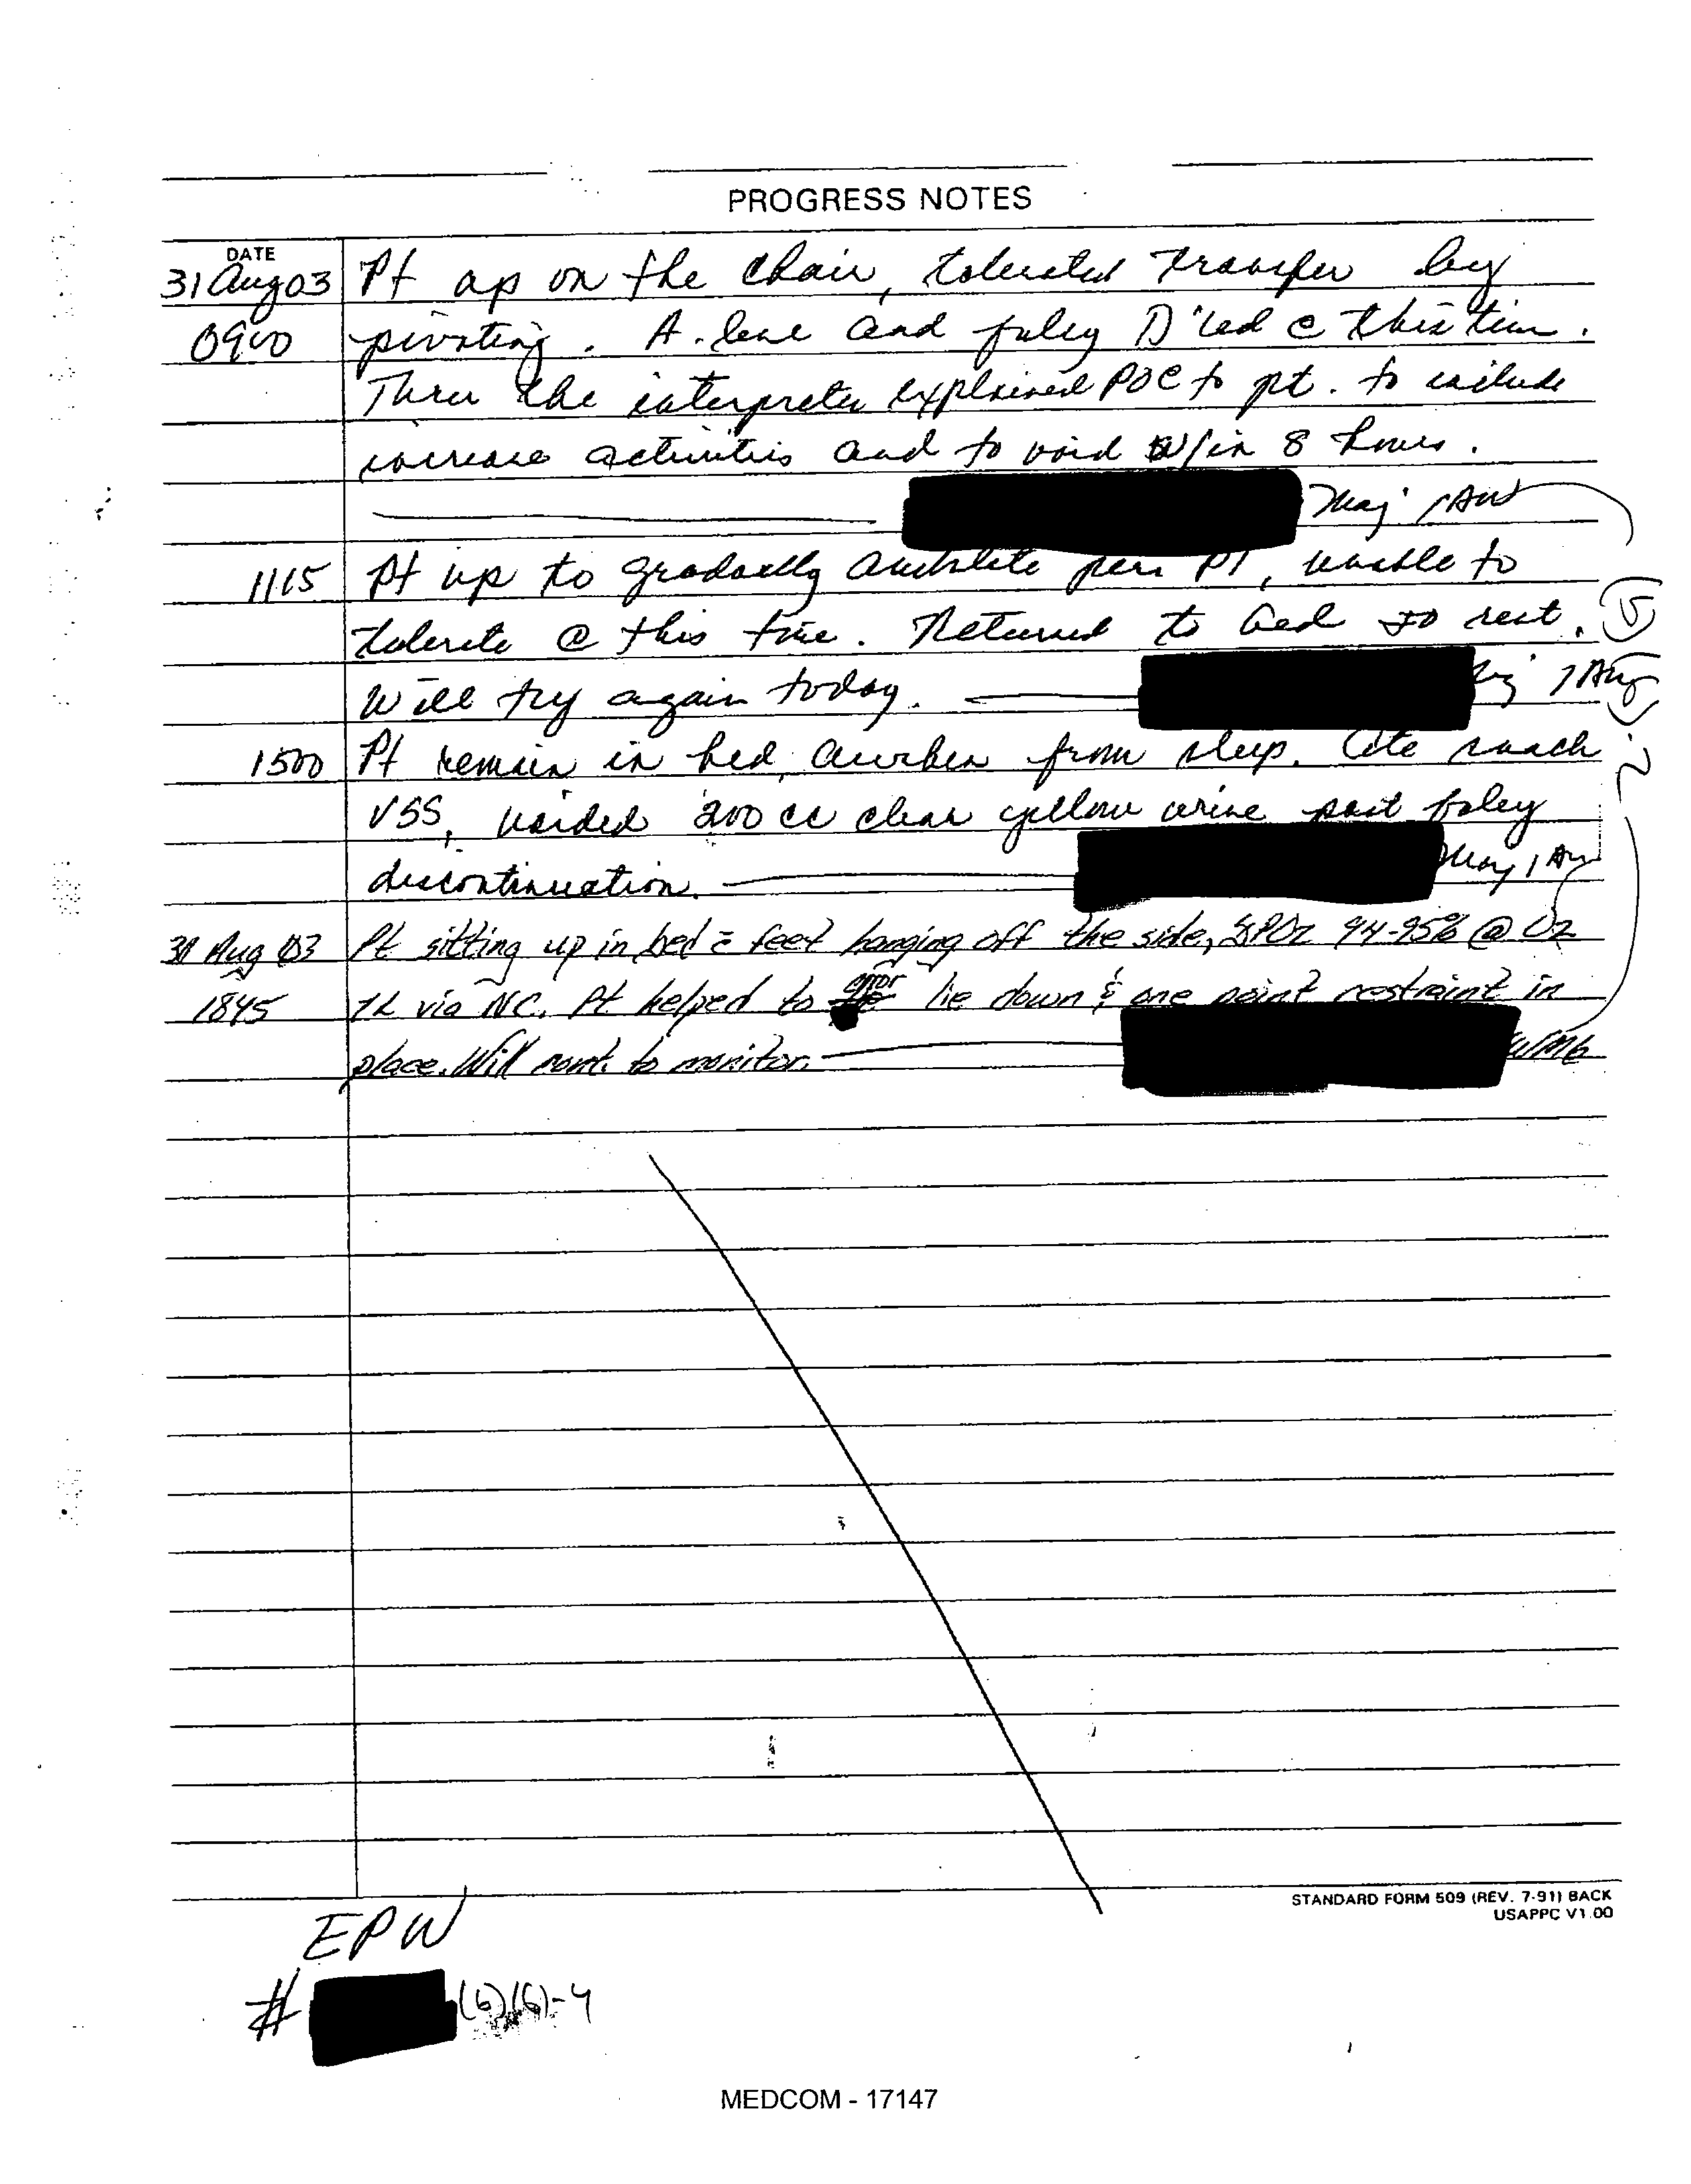 PROGRESS NOTES
DATE
31 Aug 03 Pt up on the chair, tolerated transfer by
0900 pivoting. A-line and foley D'ced @ this time.
Thru the interpreter explained POC to pt. to include
increase activities and to void w/in 8 hours.
Maj / AN
1115 Pt up to gradually ambulate per PT, unable to
tolerate @ this time. Returned to bed to rest.
Will try again today.
1500 Pt remain in bed, awaken from sleep. Ate snack
VSS, voided 200 cc clear yellow urine post foley
discontinuation. Maj / AN
31 Aug 03 Pt sitting up in bed c̄ feet hanging off the side, SPO2 94-95% @ O2
1845 1L via NC. Pt helped to error lie down & one point restraint in
place. Will cont. to monitor. WM6
STANDARD FORM 509 (REV. 7-91) BACK
USAPPC V1.00
EPW
# (b)(6)-4
MEDCOM - 17147